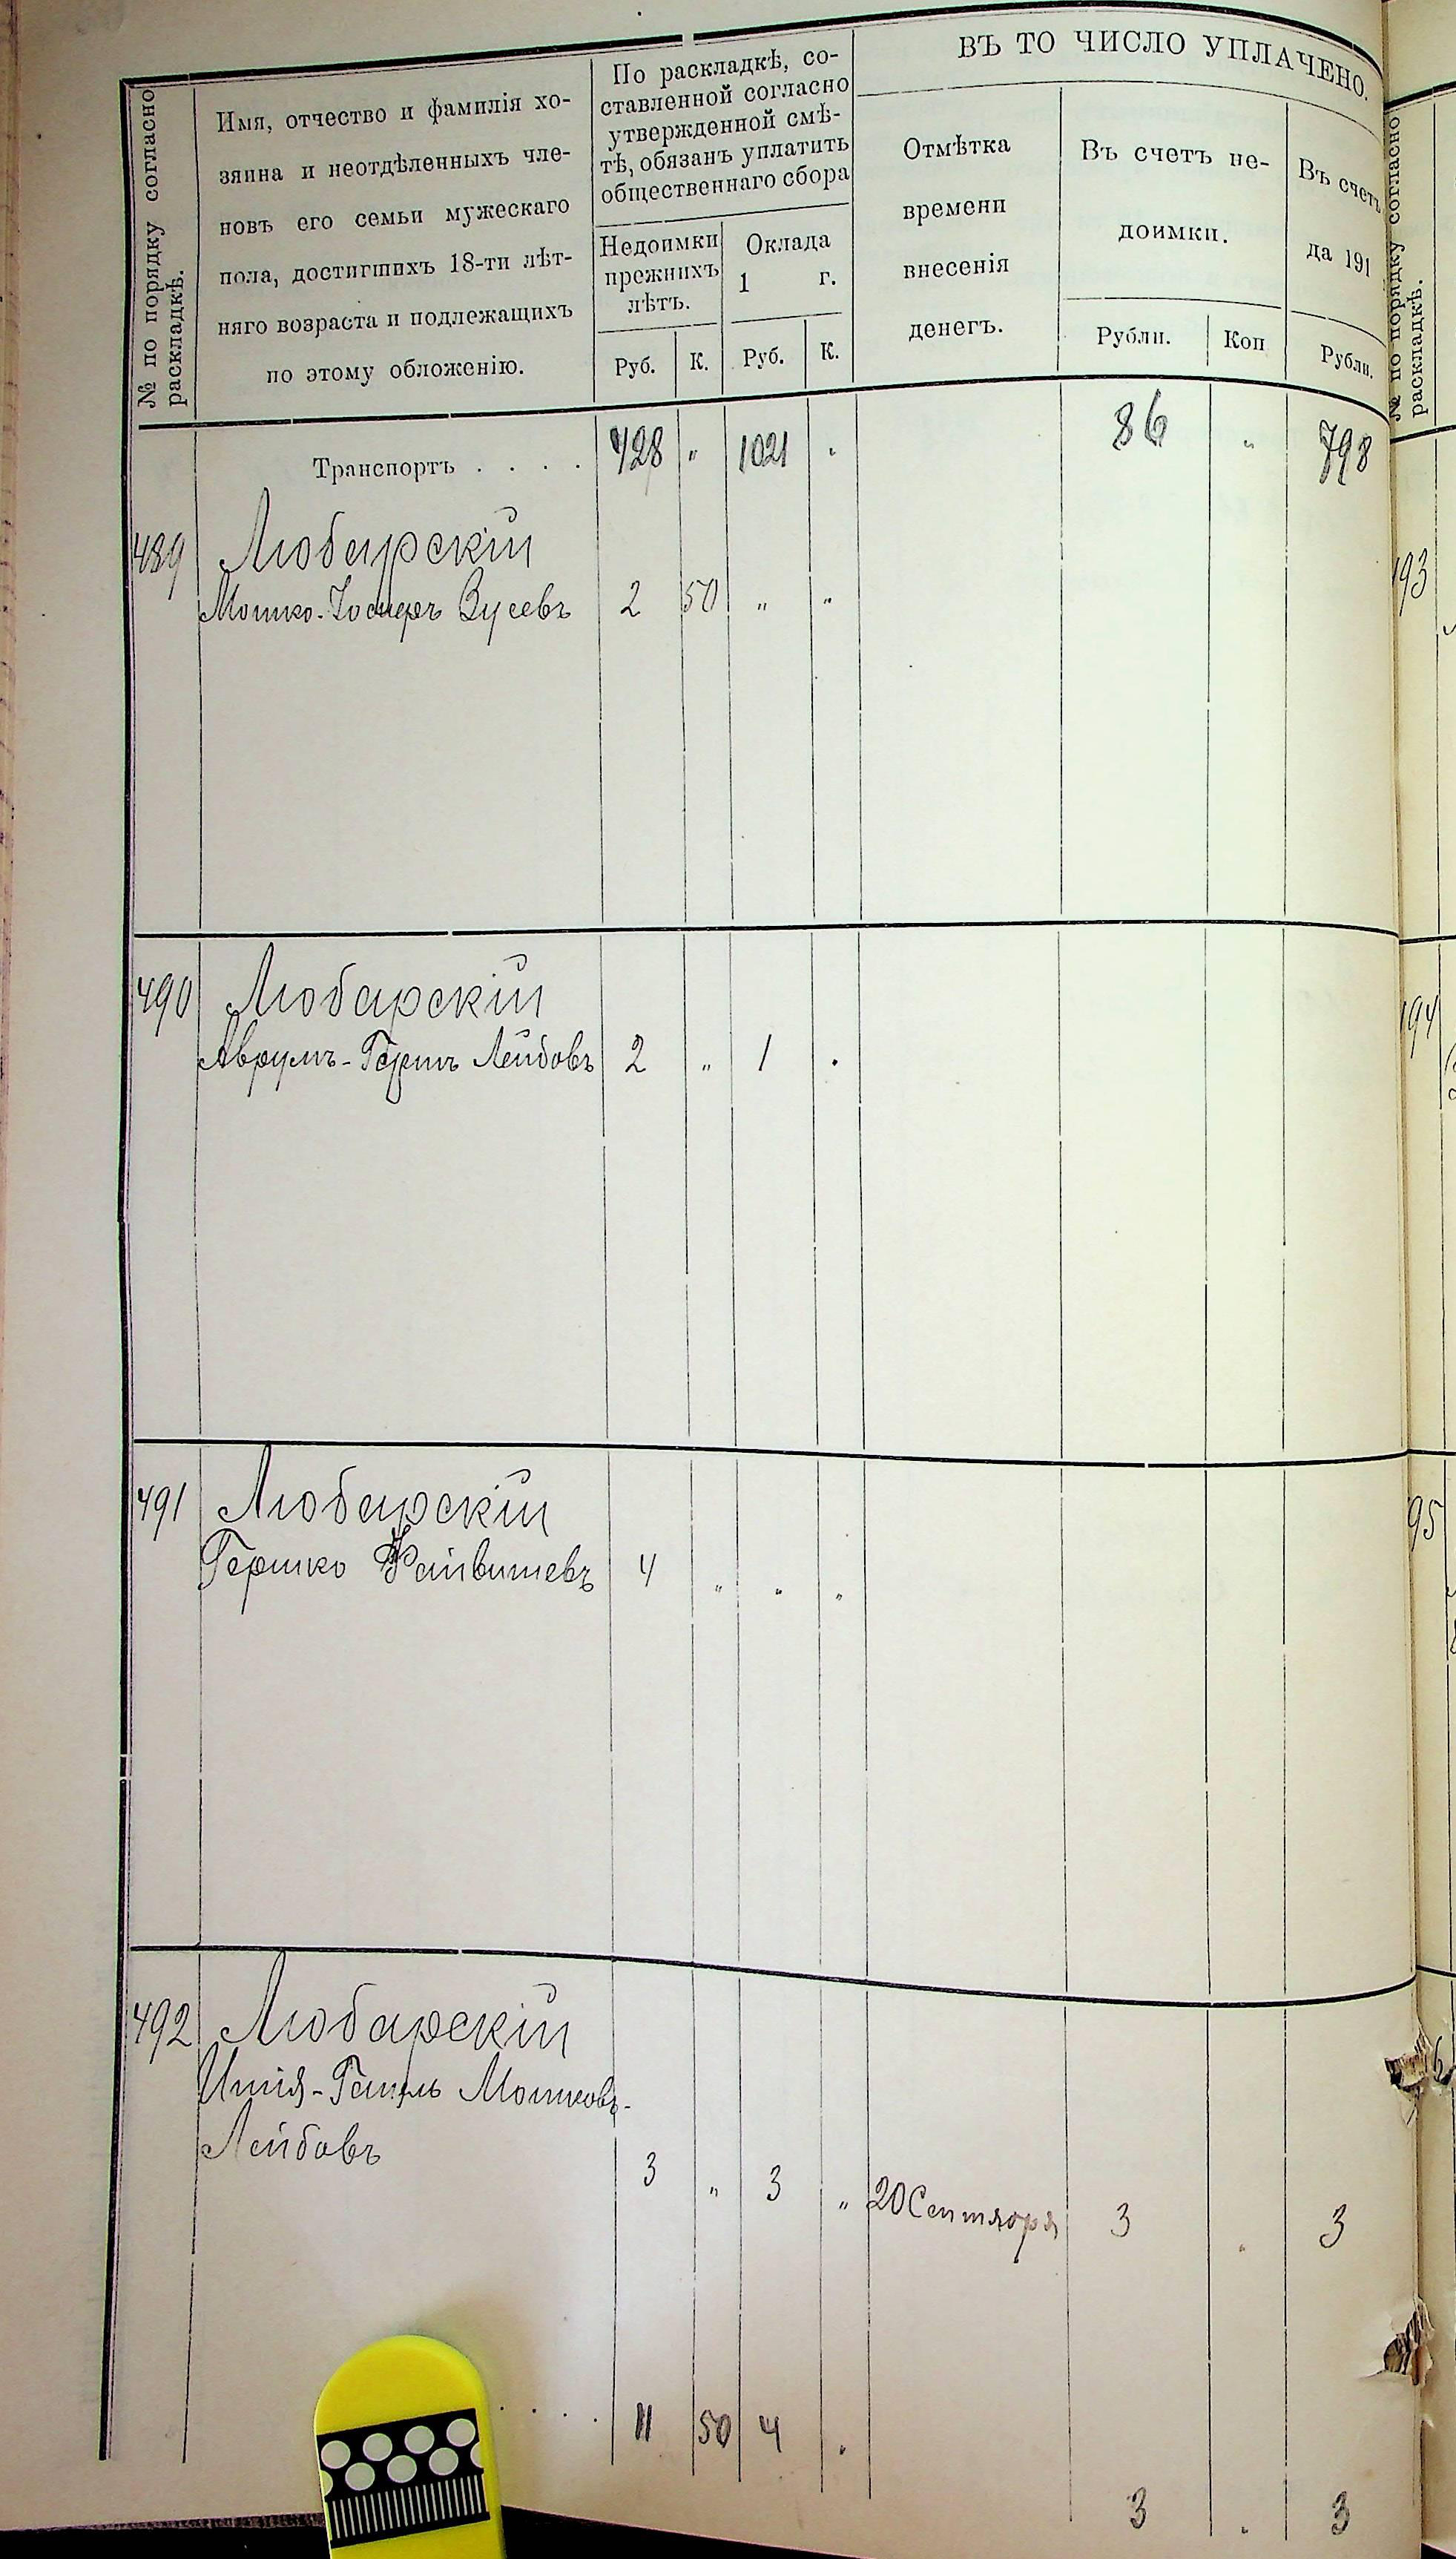 № по порядку согласно
раскладкѣ.
Имя, отчество и фамилія хо-
зяина и неотдѣленныхъ чле-
новъ его семьи мужескаго
пола, достигшихъ 18-ти лѣт-
няго возраста и подлежащихъ
по этому обложенію.
По раскладкѣ, со-
ставленной согласно
утвержденной смѣ-
тѣ, обязанъ уплатить
общественнаго сбора
Недоимки
прежнихъ
лѣтъ.
Оклада
1 г.
Руб. К. Руб. К.
ВЪ ТО ЧИСЛО УПЛАЧЕНО.
Отмѣтка
времени
внесенія
денегъ.
Въ счетъ не-
доимки.
Рубли. Коп
Въ счетъ
да 191
Рубли.
№ по порядку согласно
раскладкѣ.
Транспортъ . . . . 428 „ 1021 . 86 „ 798
489 Любарскій
Мошко-Іосифъ Зусевъ 2 50 „ „
93
490 Любарскій
Аврумъ-Гершъ Лейбовъ 2 „ 1 .
94
491 Любарскій
Гершко Файвишевъ 4 „ „ „
95
492 Любарскій
Мошковъ-
Лейбовъ
3 „ 3 „ 20 Сентября 3 . 3
. . . . 11 50 4 .
3 . 3